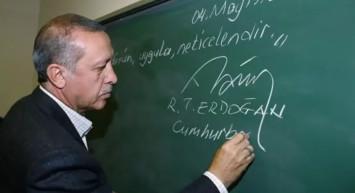 04. Mayıs
uygula, neticelendir.,,
R.T. ERDOĞAN
Cumhurb